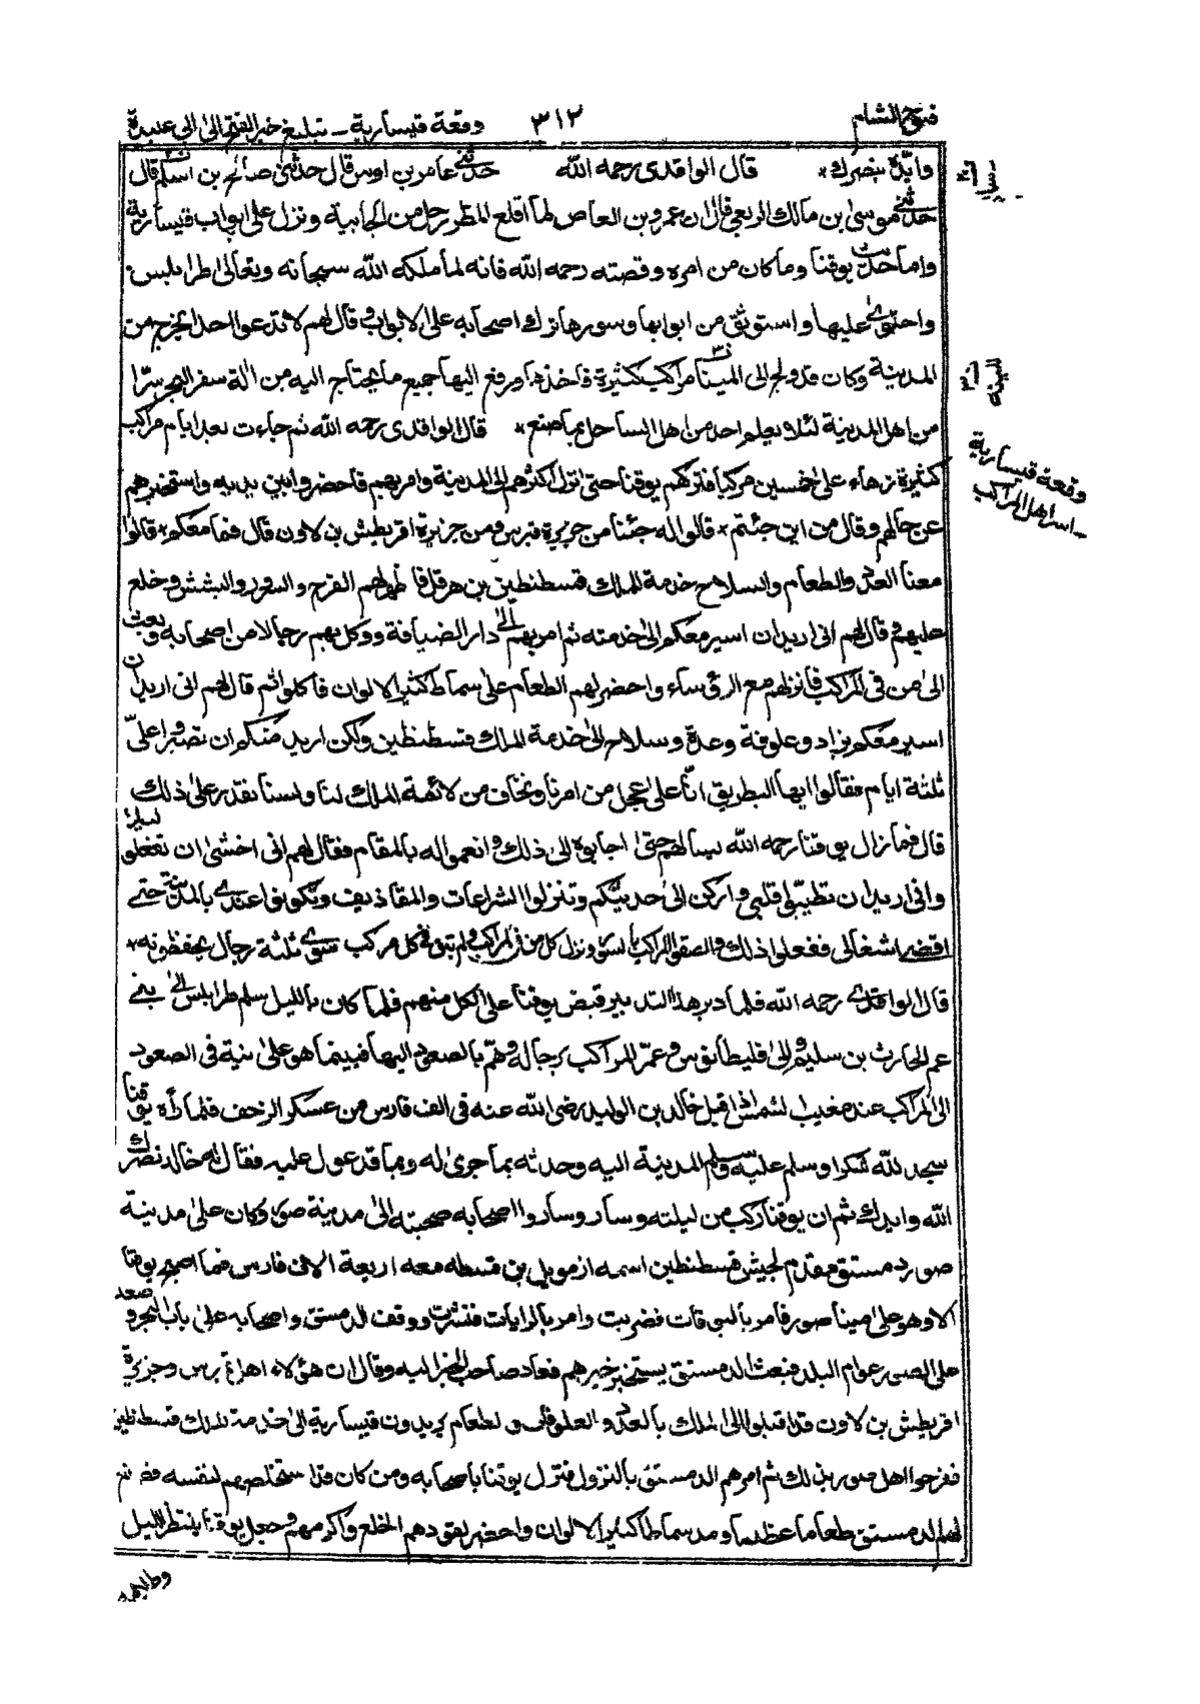 فتوح الشام ٣١٢ وقعة قيسارية ـ تبليغ خبر الفتح الى ابي عبيدة
وايده بنصره * قال الواقدى رحمه الله حدثنى عامر بن اوس قال حدثنى صالح بن اسلم قال
حدثنى موسىٰ بن مالك الربعى قال ان عمرو بن العاص لما اقلع المطر رحل من الجابية ونزل على ابواب قيسارية
واما حديث يوقنا وما كان من امره وقصته رحمه الله فانه لما ملكه الله سبحانه وتعالىٰ طرابلس
واحتوىٰ عليها واستوثق من ابوابها وسورها ترك اصحابه على الابواب وقال لهم لا تدعوا احدا يخرج من
المدينة وكان قد ولج الى المينا مراكب كثيرة فاخذها ورفع اليها جميع ما يحتاج اليه من آلة سفر البحر سرّا
من اهل المدينة لئلا يعلم احد من اهل الساحل بما صنع * قال الواقدى رحمه الله ثم جاءت بعد ايام مراكب
كثيرة زهاء على خمسين مركبا فتركهم يوقنا حتى نزل اكثرهم الى المدينة وامر بهم فاحضروا بين يديه واستخبرهم
عن حالهم وقال من اين جئتم * قالوا له جئنا من جزيرة قبرس ومن جزيرة اقريطش بن لاون قال فما معكم * قالوا
معنا العدد والطعام والسلاح خدمة للملك قسطنطين بن هرقل فاظهر لهم الفرح والسرور والبشش وخلع
عليهم وقال لهم انى اريد ان اسير معكم الىٰ خدمته ثم امر بهم الىٰ دار الضيافة ووكل بهم رجالا من اصحابه وبعث
الىٰ من فى المراكب فانزلهم مع الرؤساء واحضر لهم الطعام على سماط كثير الالوان فاكلوا ثم قال لهم انى اريد ان
اسير معكم بزاد وعلوفة وعدة وسلاح الىٰ خدمة الملك قسطنطين ولكن اريد منكم ان تصبروا علىّ
ثلثة ايام فقالوا ايها البطريق انّا على عجل من امرنا ونخاف من لائمة الملك لنا ولسنا نقدر علىٰ ذلك
قال فما زال يوقنا رحمه الله يسألهم حتىٰ اجابوه الىٰ ذلك وانعموا له بالمقام فقال لهم انى اخشىٰ ان تقلعوا
وانى اريد ان تطيبوا قلبى واركن الىٰ حديثكم وتنزلوا الشراعات والمقاذيف وتكونوا عندى بالمدينة حتى
اقضى اشغالى ففعلوا ذلك والصقوا المراكب ونزل كل من فى المراكب ولم تبق فى كل مركب سوى ثلثة رجال يحفظونه *
قال الواقدى رحمه الله فلما دبر هذا التدبير قبض يوقنا على الكل منهم فلما كان بالليل سلم طرابلس الىٰ بنى
عم الحارث بن سليم والىٰ فليطانوس وعمّر المراكب برجاله وهمّ بالصعود اليها فبينما هو علىٰ نية فى الصعود
الى المراكب عند مغيب الشمس اذا اقبل خالد بن الوليد رضى الله عنه فى الف فارس من عسكر الزحف فلما رأه يوقنا
سجد لله شكرا وسلم عليه وسلم المدينة اليه وحدثه بما جرىٰ له وبما قد عول عليه فقال له خالد نصرك
الله وايدك ثم ان يوقنا ركب من ليلته وسار وساروا اصحابه صحبته الىٰ مدينة صور وكان علىٰ مدينة
صور دمستق مقدم لجيش قسطنطين اسمه ارمويل بن قسطه معه اربعة الاف فارس فما اصبح يوقنا
الا وهو على مينا صور فامر بالبوقات فضربت وامر بالرايات فنشرت ووقف الدمستق واصحابه علىٰ باب البحر وصعد
على الصور عوام البلد فبعث الدمستق يستخبر خبرهم فعاد صاحب الخبر اليه وقال ان هؤلاء اهل قبرس وجزيرة
اقريطش بن لاون قد اقبلوا الى الملك بالعدد والعلوفات والطعام يريدون قيسارية الىٰ خدمة الملك قسطنطين
ففرحوا اهل صور بذلك ثم امرهم الدمستق بالنزول فنزل يوقنا باصحابه ومن كان قد استخلصهم لنفسه فصنع
لهم الدمستق طعاما عظيما ومد سماطا كثير الالوان واحضر لمقودهم الخلع واكرمهم وجعل يوقنا ينتظر الليل
المينه
وقعة قيسارية
ـ اسر اهل المراكب